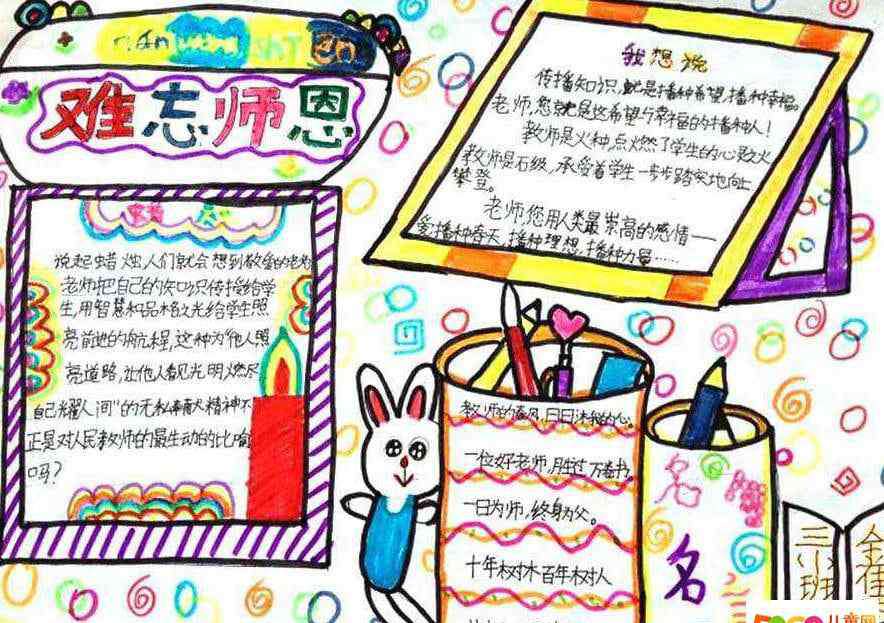 nan wang shi en
难忘师恩
说起蜡烛,人们就会想到敬爱的老师
老师把自己的知识传播给学
生,用智慧和品格之光给学生照
亮前进的航程,这种为"他人照
亮道路,让他人看见光明,燃尽
自己耀人间"的无私奉献精神不
正是对人民教师的最生动的比喻
吗?
我想说
传播知识,就是播种希望,播种幸福。
老师,您就是这希望与幸福的播种人!
教师是火种,点燃了学生的心灵之火
教师是石级,承受着学生一步步踏实地向上
攀登。
老师您用人类最崇高的感情——
爱播种春天,播种理想,播种力量……
教师的春风,日日沐我的心。
一位好老师,胜过万卷书。
一日为师,终身为父。
十年树木百年树人
名
三小班
儿童网